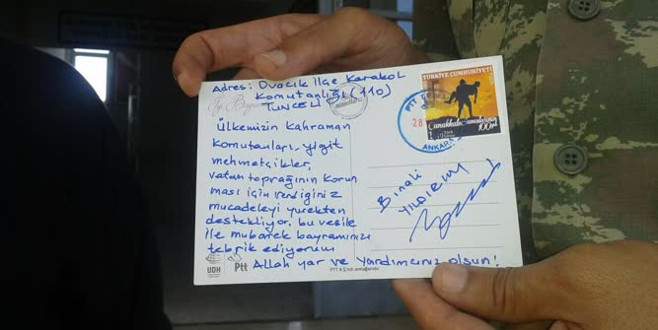 Adres: Ovacık İlçe Karakol
Komutanlığı (110)
TUNCELİ
Ülkemizin kahraman
komutanları, yiğit
mehmetçikler,
vatan toprağının korun
ması için verdiğiniz
mücadeleyi yürekten
destekliyor, bu vesile
ile mübarek bayramınızı
tebrik ediyorum
Allah yar ve yardımcınız olsun!
Binali
YILDIRIM
TÜRKİYE CUMHURİYETİ
100
PTT
28
ANKARA
UDH
Ptt